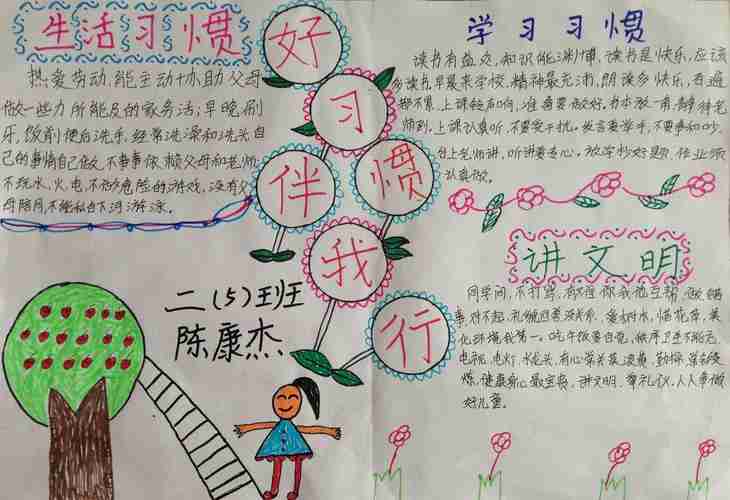 生活习惯
热爱劳动,能主动协助父母
做一些力所能及的家务活;早晚刷
牙,饭前便后洗手,经常洗澡和洗头自
己的事情自己做,不事事依赖父母和老师
不玩水,火,电,不做危险的游戏,没有父
母陪同不能私自下河游泳。
好
习
惯
伴
我
行
二(5)班
陈康杰
学习习惯
读书有益处,知识能渊博,读书是快乐,应该
多读书,早晨来学校,精神最充沛,朗读多快乐,看通
都不累,上课铃声响,准备要做好,书本放一角,静待老
师到,上课认真听,不要受干扰。发言要举手,不要喊和吵
台上老师讲,听讲要专心。放学抄好题,作业须
认真做。
讲文明
同学间,不打骂,有道你我相互帮 做错
事,对不起,礼貌回答没关系。爱树木,惜花草,美
化环境我第一。吃午饭要自觉,秩序卫生不能忘,
电视,电灯,水龙头,有心常关莫浪费,勤探
炼,健康身心最宝贵,讲文明,尊礼仪,人人争做
好儿童。